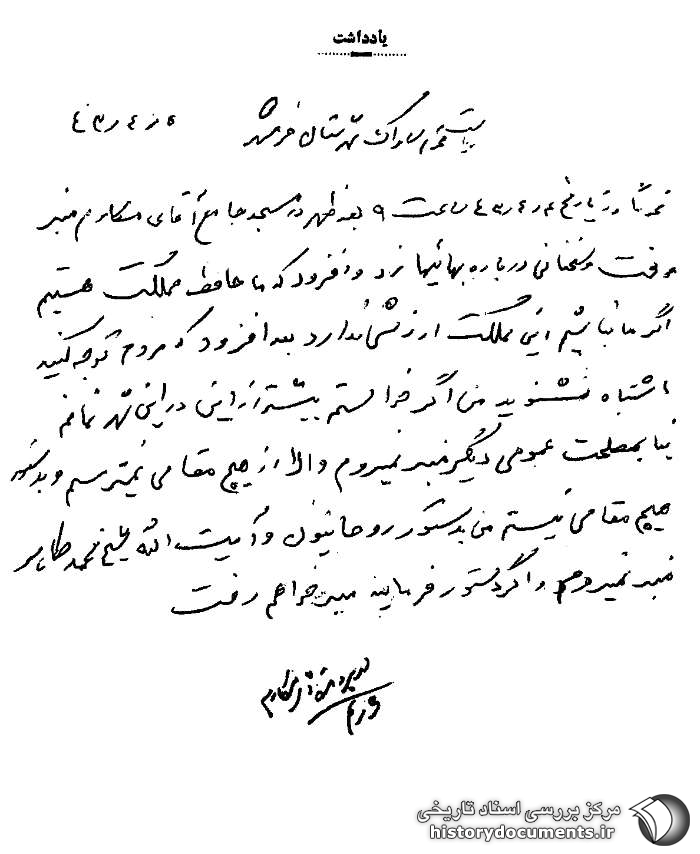 یادداشت
ریاست محترم ساواک شهرستان خرمشهر
محترماً روز تاریخ ۴۳/۴/ ساعت ۹ بعدظهر در مسجد جامع آقای مکارم منبر
رفت و سخنانی درباره بهائیها زد و افزود که ما حافظ مملکت هستیم
اگر ما نباشیم این مملکت ارزشی ندارد بعد افزود که مردم توجه کنید
اشتباه نشنوید من اگر خواستم بیشتر از این در این شهر نمانم
بنا بمصلحت عمومی دیگر منبر نمیروم والا از هیچ مقامی نمیترسم و بدستور
هیچ مقامی نیستم من بدستور روحانیون و آیت الله شیخ محمد طاهر
منبر نمیروم و اگر دستور فرمایند منبر خواهم رفت
مکارم
مرکز بررسی اسناد تاریخی
historydocuments.ir